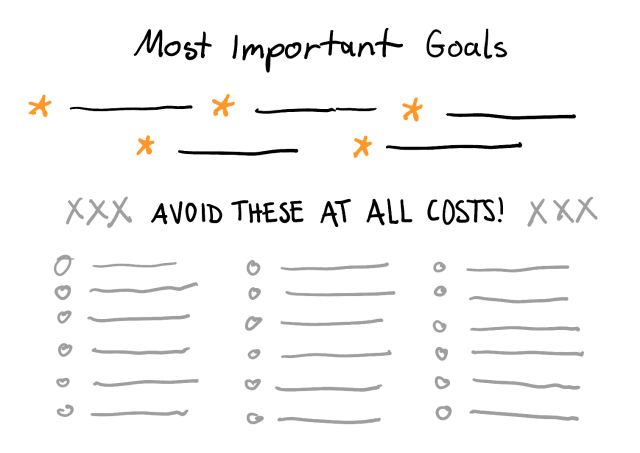 Most Important Goals
XXX AVOID THESE AT ALL COSTS! XXX